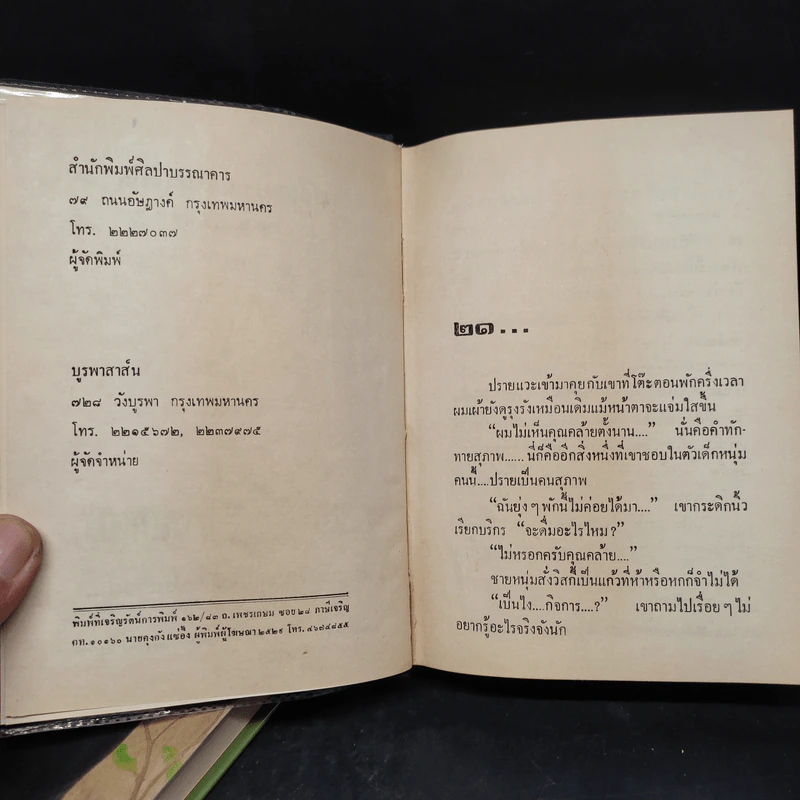 สำนักพิมพ์ศิลปาบรรณาคาร
๗๙ ถนนอัษฎางค์ กรุงเทพมหานคร
โทร. ๒๒๒๗๐๓๗
ผู้จัดพิมพ์
บูรพาสาส์น
๗๒๘ วังบูรพา กรุงเทพมหานคร
โทร. ๒๒๑๕๖๗๒, ๒๒๓๗๙๗๕
ผู้จัดจำหน่าย
พิมพ์ที่เจริญรัตน์การพิมพ์ ๑๖๒/๘๓ ถ. เพชรเกษม ซอย ๒๘ ภาษีเจริญ
กท. ๑๐๑๖๐ นายคุงกัง แซ่อึ้ง ผู้พิมพ์ผู้โฆษณา ๒๕๒๙ โทร. ๔๖๗๔๘๕๕
๒๑...
ปรายแวะเข้ามาคุยกับเขาที่โต๊ะตอนพักครึ่งเวลา
ผมเผ้ายังดูรุงรังเหมือนเดิมแม้หน้าตาจะแจ่มใสขึ้น
“ผมไม่เห็นคุณคล้ายตั้งนาน....” นั่นคือคำทัก-
ทายสุภาพ...... นี่ก็คืออีกสิ่งหนึ่งที่เขาชอบในตัวเด็กหนุ่ม
คนนี้....ปรายเป็นคนสุภาพ
“ฉันยุ่ง ๆ พักนี้ไม่ค่อยได้มา....” เขากระดิกนิ้ว
เรียกบริกร “จะดื่มอะไรไหม ?”
“ไม่หรอกครับคุณคล้าย....”
ชายหนุ่มสั่งวิสกี้เป็นแก้วที่ห้าหรือหกก็จำไม่ได้
“เป็นไง....กิจการ....?” เขาถามไปเรื่อย ๆ ไม่
อยากรู้อะไรจริงจังนัก